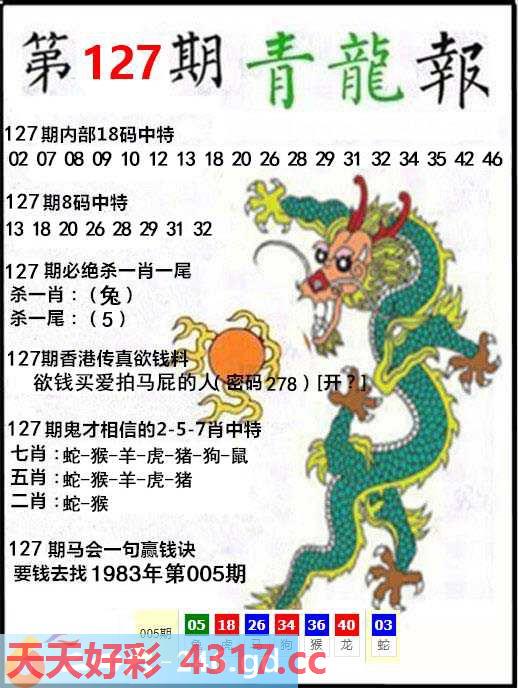 第127期 青龍報
127期内部18码中特
02 07 08 09 10 12 13 18 20 26 28 29 31 32 34 35 42 46
127期8码中特
13 18 20 26 28 29 31 32
127期必绝杀一肖一尾
杀一肖：（兔）
杀一尾：（5）
127期香港传真欲钱料
欲钱买爱拍马屁的人（密码278）[开？]
127期鬼才相信的2-5-7肖中特
七肖：蛇-猴-羊-虎-猪-狗-鼠
五肖：蛇-猴-羊-虎-猪
二肖：蛇-猴
127期马会一句赢钱诀
要钱去找1983年第005期
005期 05 18 26 34 36 40 03
兔 虎 马 狗 猴 龙 蛇
天天好彩 4317.cc